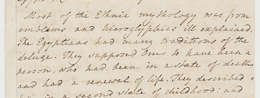 Most of the Ethnic mythology was from
emblems and hieroglyphics ill explained.
The Egyptians had many traditions of the
deluge. They supposed Eros to have been a
person, who had been in a state of death
and had a renewal of life. They described
in a second state of childhood; and